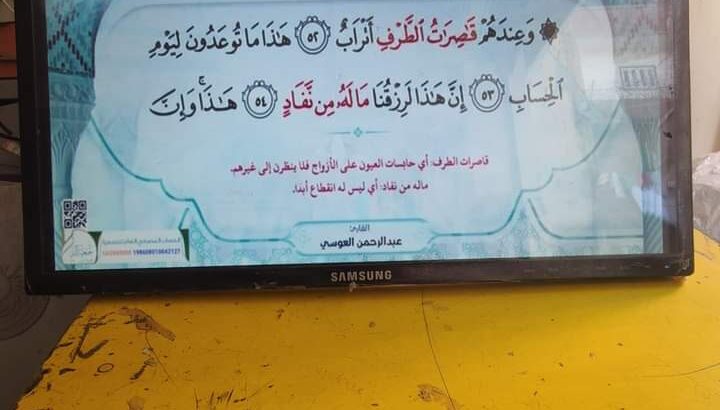 ۞ وَعِندَهُمْ قَاصِرَاتُ الطَّرْفِ أَتْرَابٌ ٥٢ هَٰذَا مَا تُوعَدُونَ لِيَوْمِ
الْحِسَابِ ٥٣ إِنَّ هَٰذَا لَرِزْقُنَا مَا لَهُ مِن نَّفَادٍ ٥٤ هَٰذَا ۚ وَإِنَّ
قاصرات الطرف: أي حابسات العيون على الأزواج فلا ينظرن إلى غيرهم.
ماله من نفاد: أي ليس له انقطاع أبدا.
القارئ:
عبدالرحمن العوسي
SAMSUNG